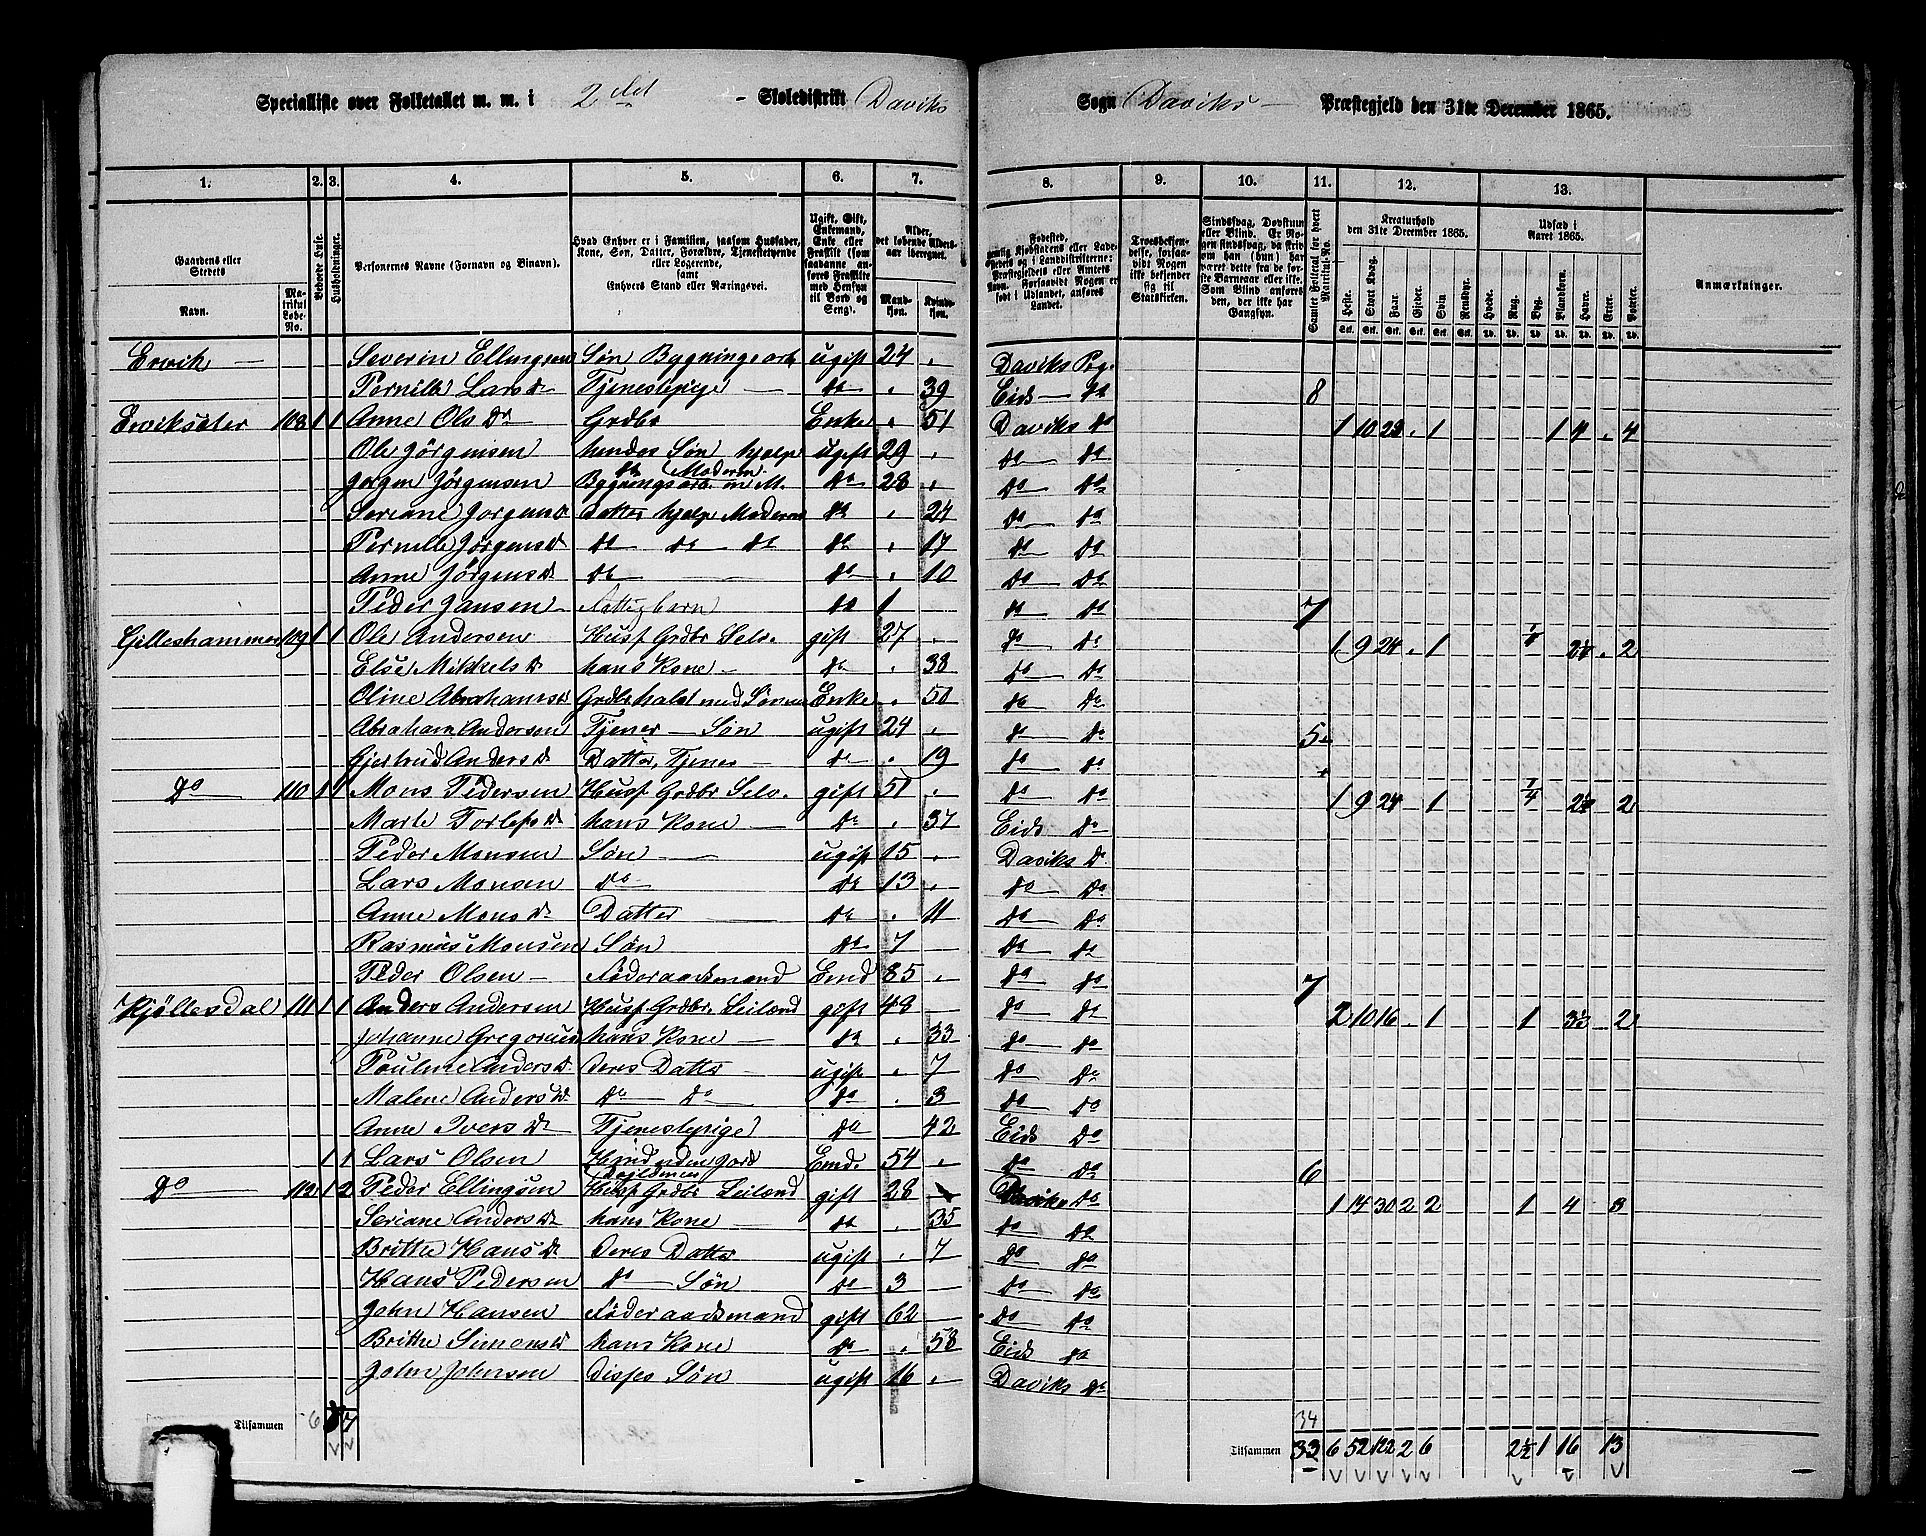 Specialliste over Folketallet m. m. i 2det - Skoledistrikt Daviks
Sogn Daviks - Præstegjeld den 31te December 1865.
1. 2. 3. 4. 5. 6. 7. 8. 9. 10. 11. 12. 13.
Gaardens eller Stedets Navn. Matrikul Løbe-No. Beboede Huse. Husholdninger. Personernes Navne (Fornavn og Binavn). Hvad Enhver er i Familien, saasom Husfader, Kone, Søn, Datter, Forældre, Tjenestetyende eller Logerende, samt Enhvers Stand eller Næringsvei. Ugift, Gift, Enkemand, Enke eller Fraskilt (som saadanne anføres Fraskilte med Hensyn til Bord og Seng). Alder, det løbende Aldersaar iberegnet. Mandkjøn. Kvindekjøn.
Troesbekjendelse, forsaavidt Nogen ikke bekjender sig til Statskirken. Samlet Folketal for hvert Matrikul-No. Kreaturhold den 31te December 1865. Udsæd i Aaret 1865. Anmærkninger.
Heste. Stort Kvæg. Faar. Gjeder. Svin. Rensdyr. Hvede. Rug. Byg. Blandkorn. Havre. Erter. Poteter.
Ervik — Severin Ellingsen Søn Bygningsarb ugift 24 . Daviks Pg.
Pernille Lars Dr Tjenestepige — do . 39 Eids — do 8
Erviksæter 108 1 1 Anne Ols Dr Grdbr Enke . 51 Daviks do 1 10 23 . 1 1 4 . 4
Ole Jörgensen hendes Søn hjelper Moderen ugift 29 . do do
Jørgen Jörgensen do Bygningsarb. M. do 28 . do do
Seriane Jörgensd datter hjelp Moderen do . 24 do do
Pernille Jørgensd do do do do . 17 do do
Anne Jörgensd do do . 10 do do
Peder Jansen do 1 do do 7
Gilleshammer 109 1 1 Ole Andersen Husf Grdbr Selv. gift 27 . do do 1 9 24 . 1 . 2
Else Mikkels Dr hans Kone — do . 38 do do
Oline Abrahamsd Enke . 50 do do
Abraham Andersen Tjener — Søn ugift 24 . do do 5
Gjertrud Anders D Datter, Tjener — do . 19 do do
Do 110 1 1 Mons Pedersen Husf Grdbr Selv. gift 51 . do do 1 9 24 . 1 1/4 2
Marte Torlefsd hans Kone — do . 37 Eids do
Peder Monsen Søn — ugift 15 . Daviks Do
Lars Monsen do do 13 . do do
Anne Mons D Datter do . 11 do do
Rasmus Monsen Søn do 7 do do
Peder Olsen — Föderaadsmand Emd 85 . do do 7
Kjöllesdal 111 1 1 Anders Andersen Husf Grdbr. Leilænd gift 48 . do do 2 10 16 . 1 1 3½ . 2
Johanne Gregorius hans Kone — do . 33 do do
Pauline Anders D Deres Datter ugift . 7 do do
Malene Anders D do do do . 3 do do
Anne Ivers D Tjenestepige do . 42 Eids do
1 1 Lars Olsen Emd. 54 . do do 6
Do 112 1 2 Peder Ellingsen Husf Grdbr Leilænd gift 28 do 1 14 30 2 2 1 4 8
Seriane Anders D hans Kone — do . 35 do do
Brithe Hans D Deres Datter ugift . 7 do do
Hans Pedersen do — Søn do 3 do do
John Hansen Föderaadsmand gift 62 do do
Brithe Simonsd hans Kone do . 58 Eids do
John Johnsen Disses Søn ugift 16 . Daviks do
34
Tilsammen 6 7
Tilsammen 33 6 52 122 2 6 2½ 1 16 13